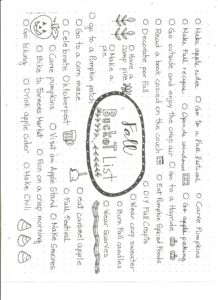 Fall
Bucket List
Make apple cider
Go to a Fall Festival
Carve Pumpkins
Make Fall recipe
Open windows
Go apple picking
Go outside and enjoy the crisp air
Go to a Hayride
Read a book
on the couch
Eat Pumpkin Spiced Foods
Decorate for Fall
DIY Fall Crafts
Have a
camp fire
Wear cozy sweater
Make a
pie
Burn Fall candles
Wear Scarves
go to a Pumpkin patch
Go to a corn maze
eat caramel apple
Celebrate Oktoberfest
Fall Festival
Carve pumpkins
Visit an Apple Stand
Make Smores
Bike to Farmers Market
Run on a crisp morning
Go hiking
Drink apple cider
Make Chili